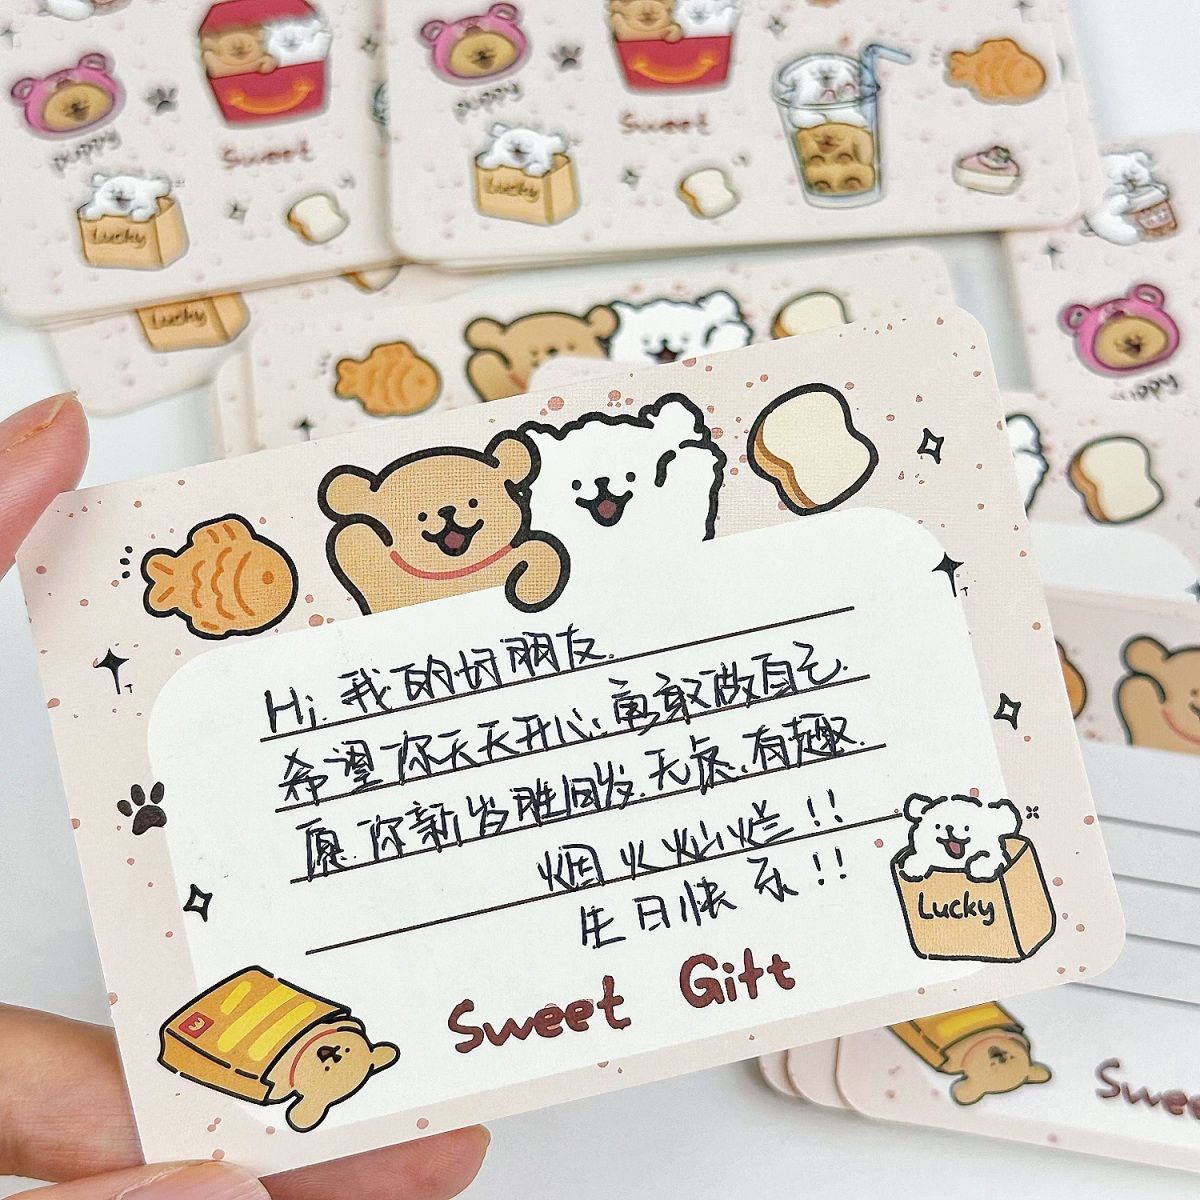 puppy
Sweet
Lucky
puppy
Sweet
Lucky
Lucky
puppy
Hi. 我的好朋友.
希望你天天开心. 勇敢做自己.
愿你新岁胜旧岁. 无虑. 有趣.
烟火灿烂!!
生日快乐!!
Lucky
Sweet Gift
Swee